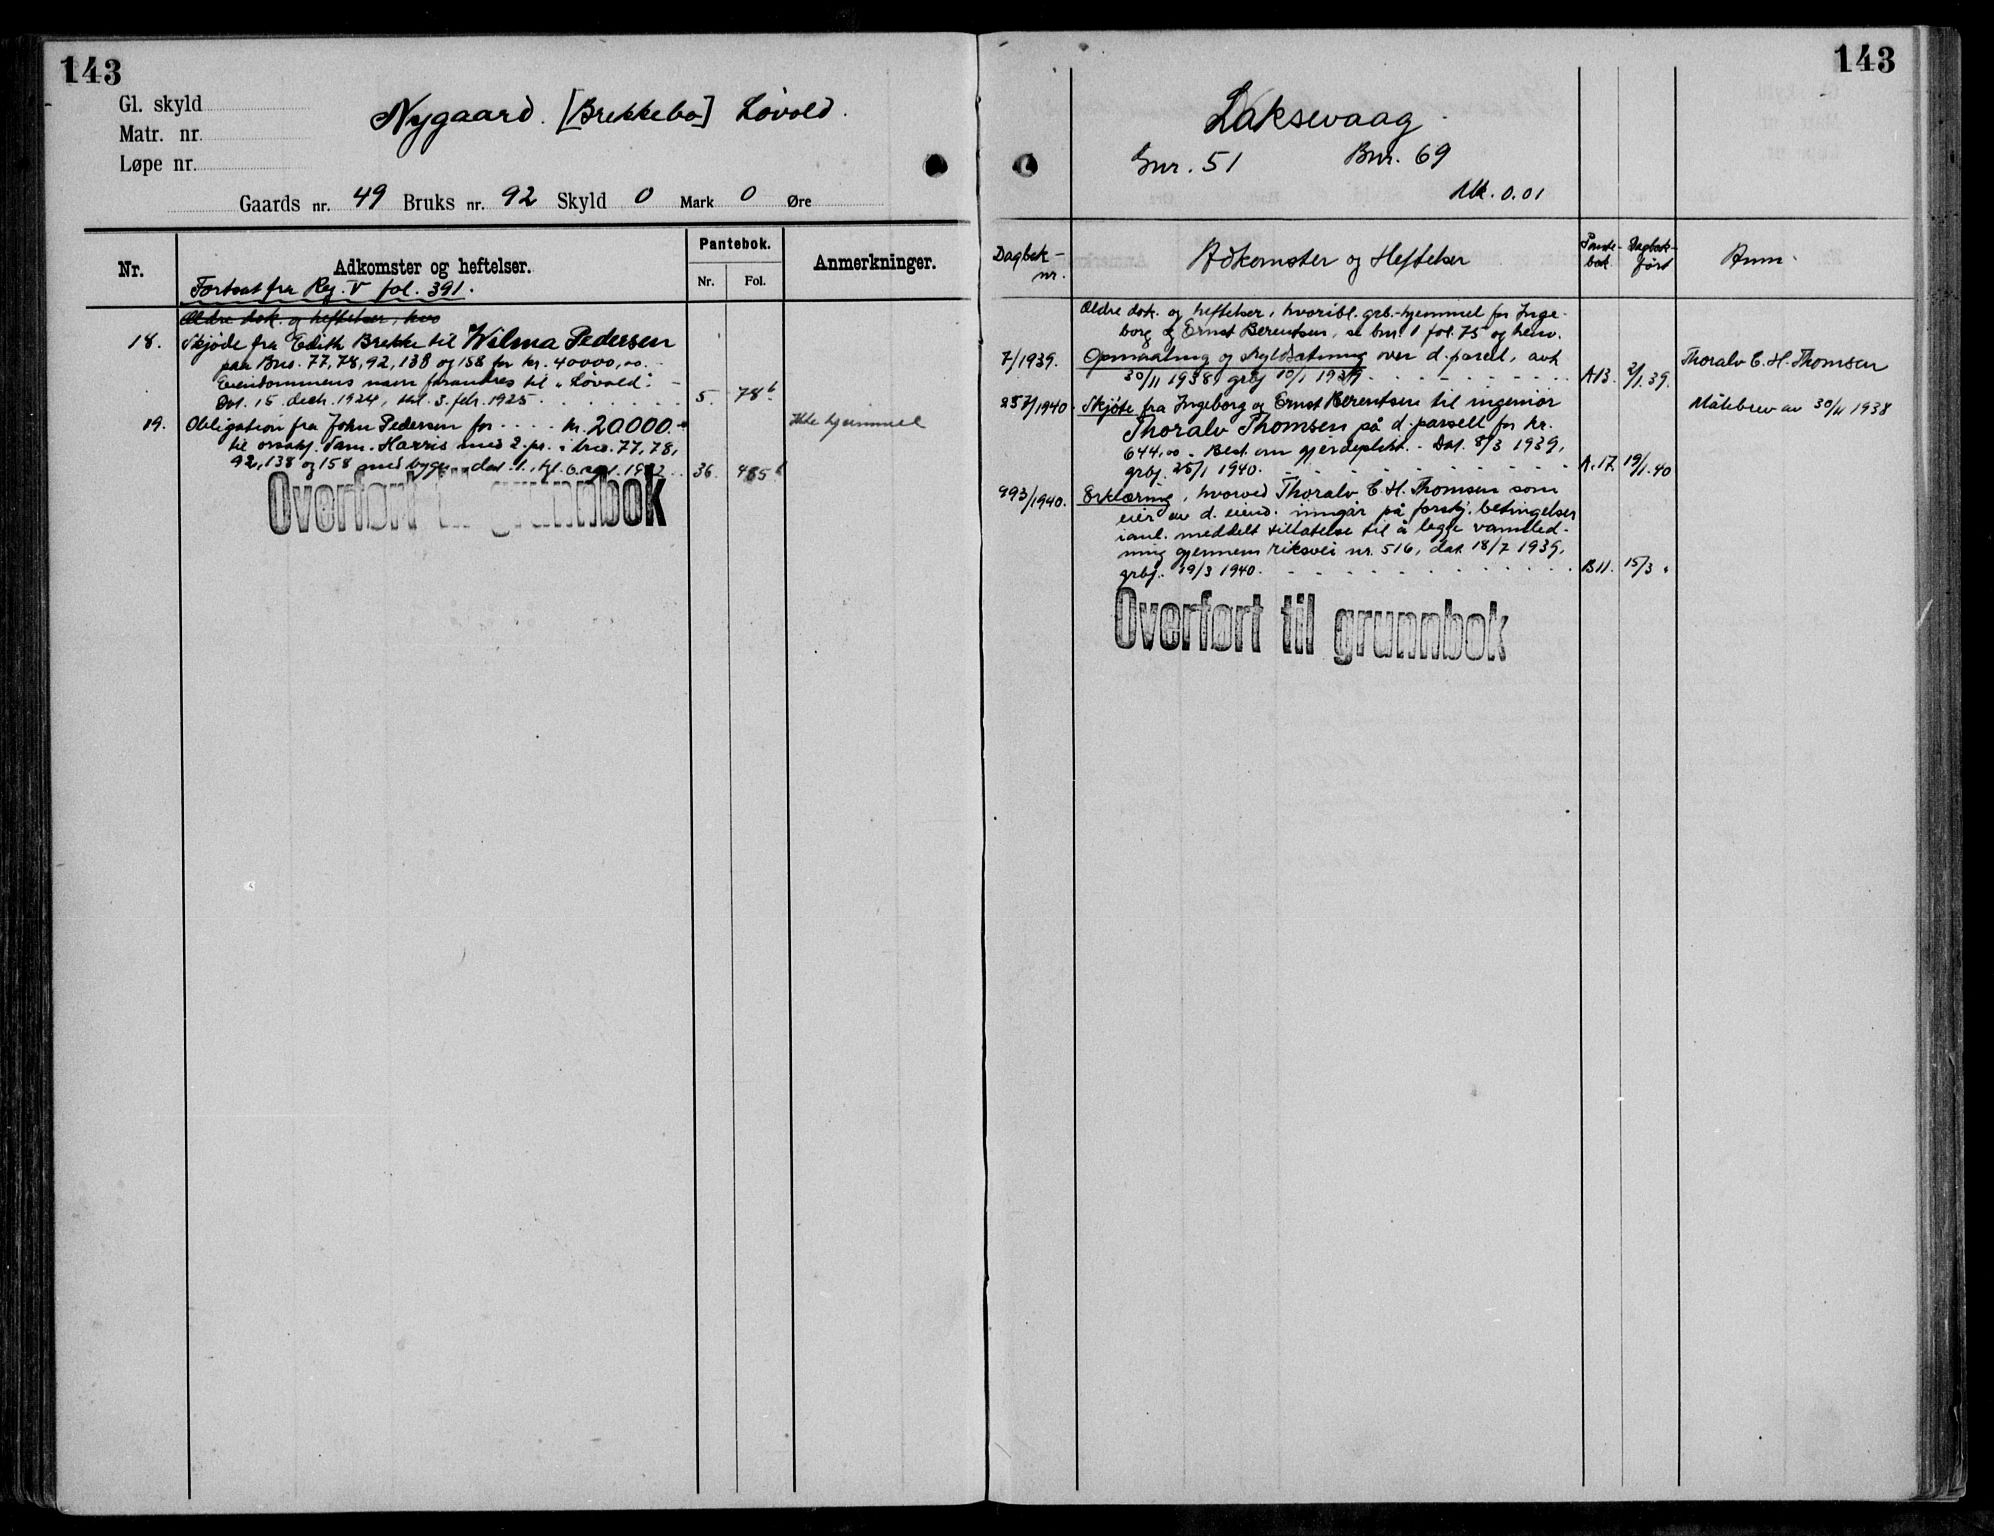 143
Gl. skyld
Matr. nr.
Løpe nr.
Nygaard. [Brekkebo] Løvold.
Gaards nr. 49 Bruks nr. 92 Skyld 0 Mark 0 Øre
Nr.
Adkomster og heftelser.
Pantebok.
Nr. Fol.
Anmerkninger.
Fortsat fra Reg. V fol. 391.
Ældre dok. og heftelser, hvo
18. Skjøde fra Edith Brekke til Wilma Pedersen
paa Bno. 77, 78, 92, 138 og 158 for kr. 40000,00.
Eiendommens navn forandres til "Løvold". -
Dat. 15. decbr. 1924, thl. 3. febr. 1925 5. 78b
19. Obligation fra John Pedersen for kr. 20000.- Ikke hjemmel
til orsakf. Harris med 2. pr. i bno. 77, 78,
92, 138 og 158 med bygn. dat. 1., tgl. 6. 36. 485b
Overført til grunnbok
143
Laksevaag.
Gnr. 51 Bnr. 69
Mk. 0.01
Dagbok-
nr.
Adkomster og Heftelser
Pante-
bok.
Dagbok-
ført
Anm.
Ældre dok. og heftelser, hvoribl. grb.-hjemmel for Inge-
borg og Ernst Berentsen, se bnr. 1 fol. 75 og henv.
7/1939. Opmaaling og skyldsætning over d. parcel, avh.
30/11 1938, grbj 10/1 1939 A13. 2/1.39. Thoralv C. H. Thomsen
257/1940. Skjøte fra Ingeborg og Ernst Berentsen til ingeniør Målebrev av 30/11 1938
Thoralv Thomsen på d. parsell for kr.
644,00. - Best. om gjerdeplikt. - Dat. 8/3 1939,
grbj. 25/1 1940. A.17. 19/1.40
993/1940. Erklæring, hvorved Thoralv C. H. Thomsen som
eier av d. eiend. inngår på forskj. betingelser
ianl. meddelt tillatelse til å legge vannled-
ning gjennem riksvei nr. 516, dat. 18/7 1939,
grbj. 19/3 1940. B11. 15/3 "
Overført til grunnbok